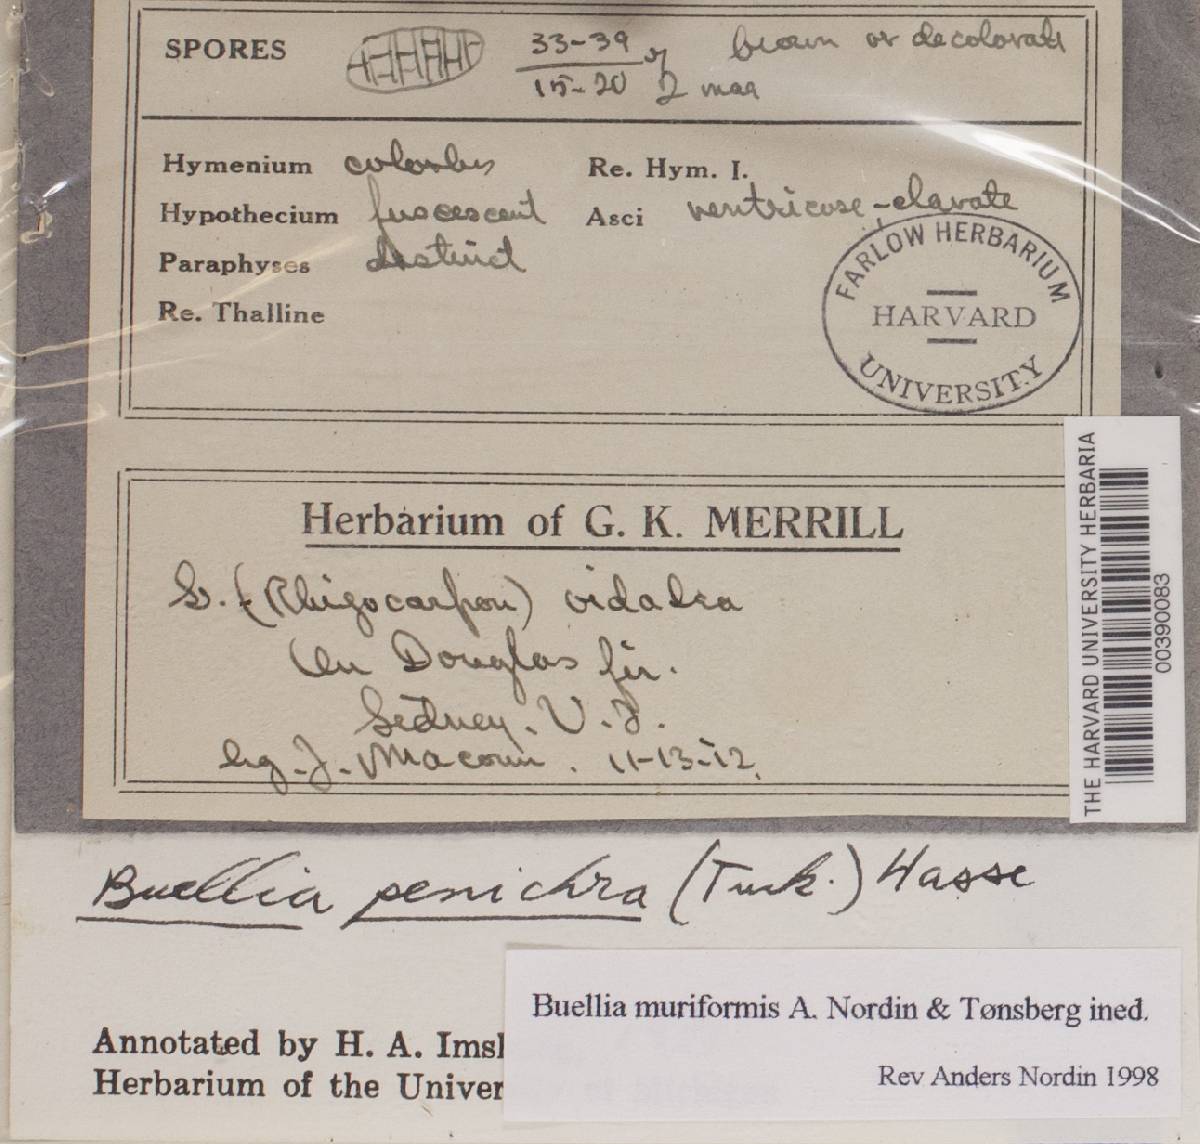 SPORES 33-39 brown or decolorate
15-20 μ 2 maa
Hymenium colorless Re. Hym. I.
Hypothecium fuscescent Asci ventricose-clavate
Paraphyses distinct
Re. Thalline
FARLOW HERBARIUM
HARVARD
UNIVERSITY
Herbarium of G. K. MERRILL
(Rhizocarpon)
On Douglas fir.
Sidney. V. I.
leg. J. Macoun. 11-13-12.
THE HARVARD UNIVERSITY HERBARIA
00390083
Buellia penichra (Tuck.) Hasse
Annotated by H. A. Imsh
Herbarium of the Univer
Buellia muriformis A. Nordin & Tønsberg ined.
Rev Anders Nordin 1998